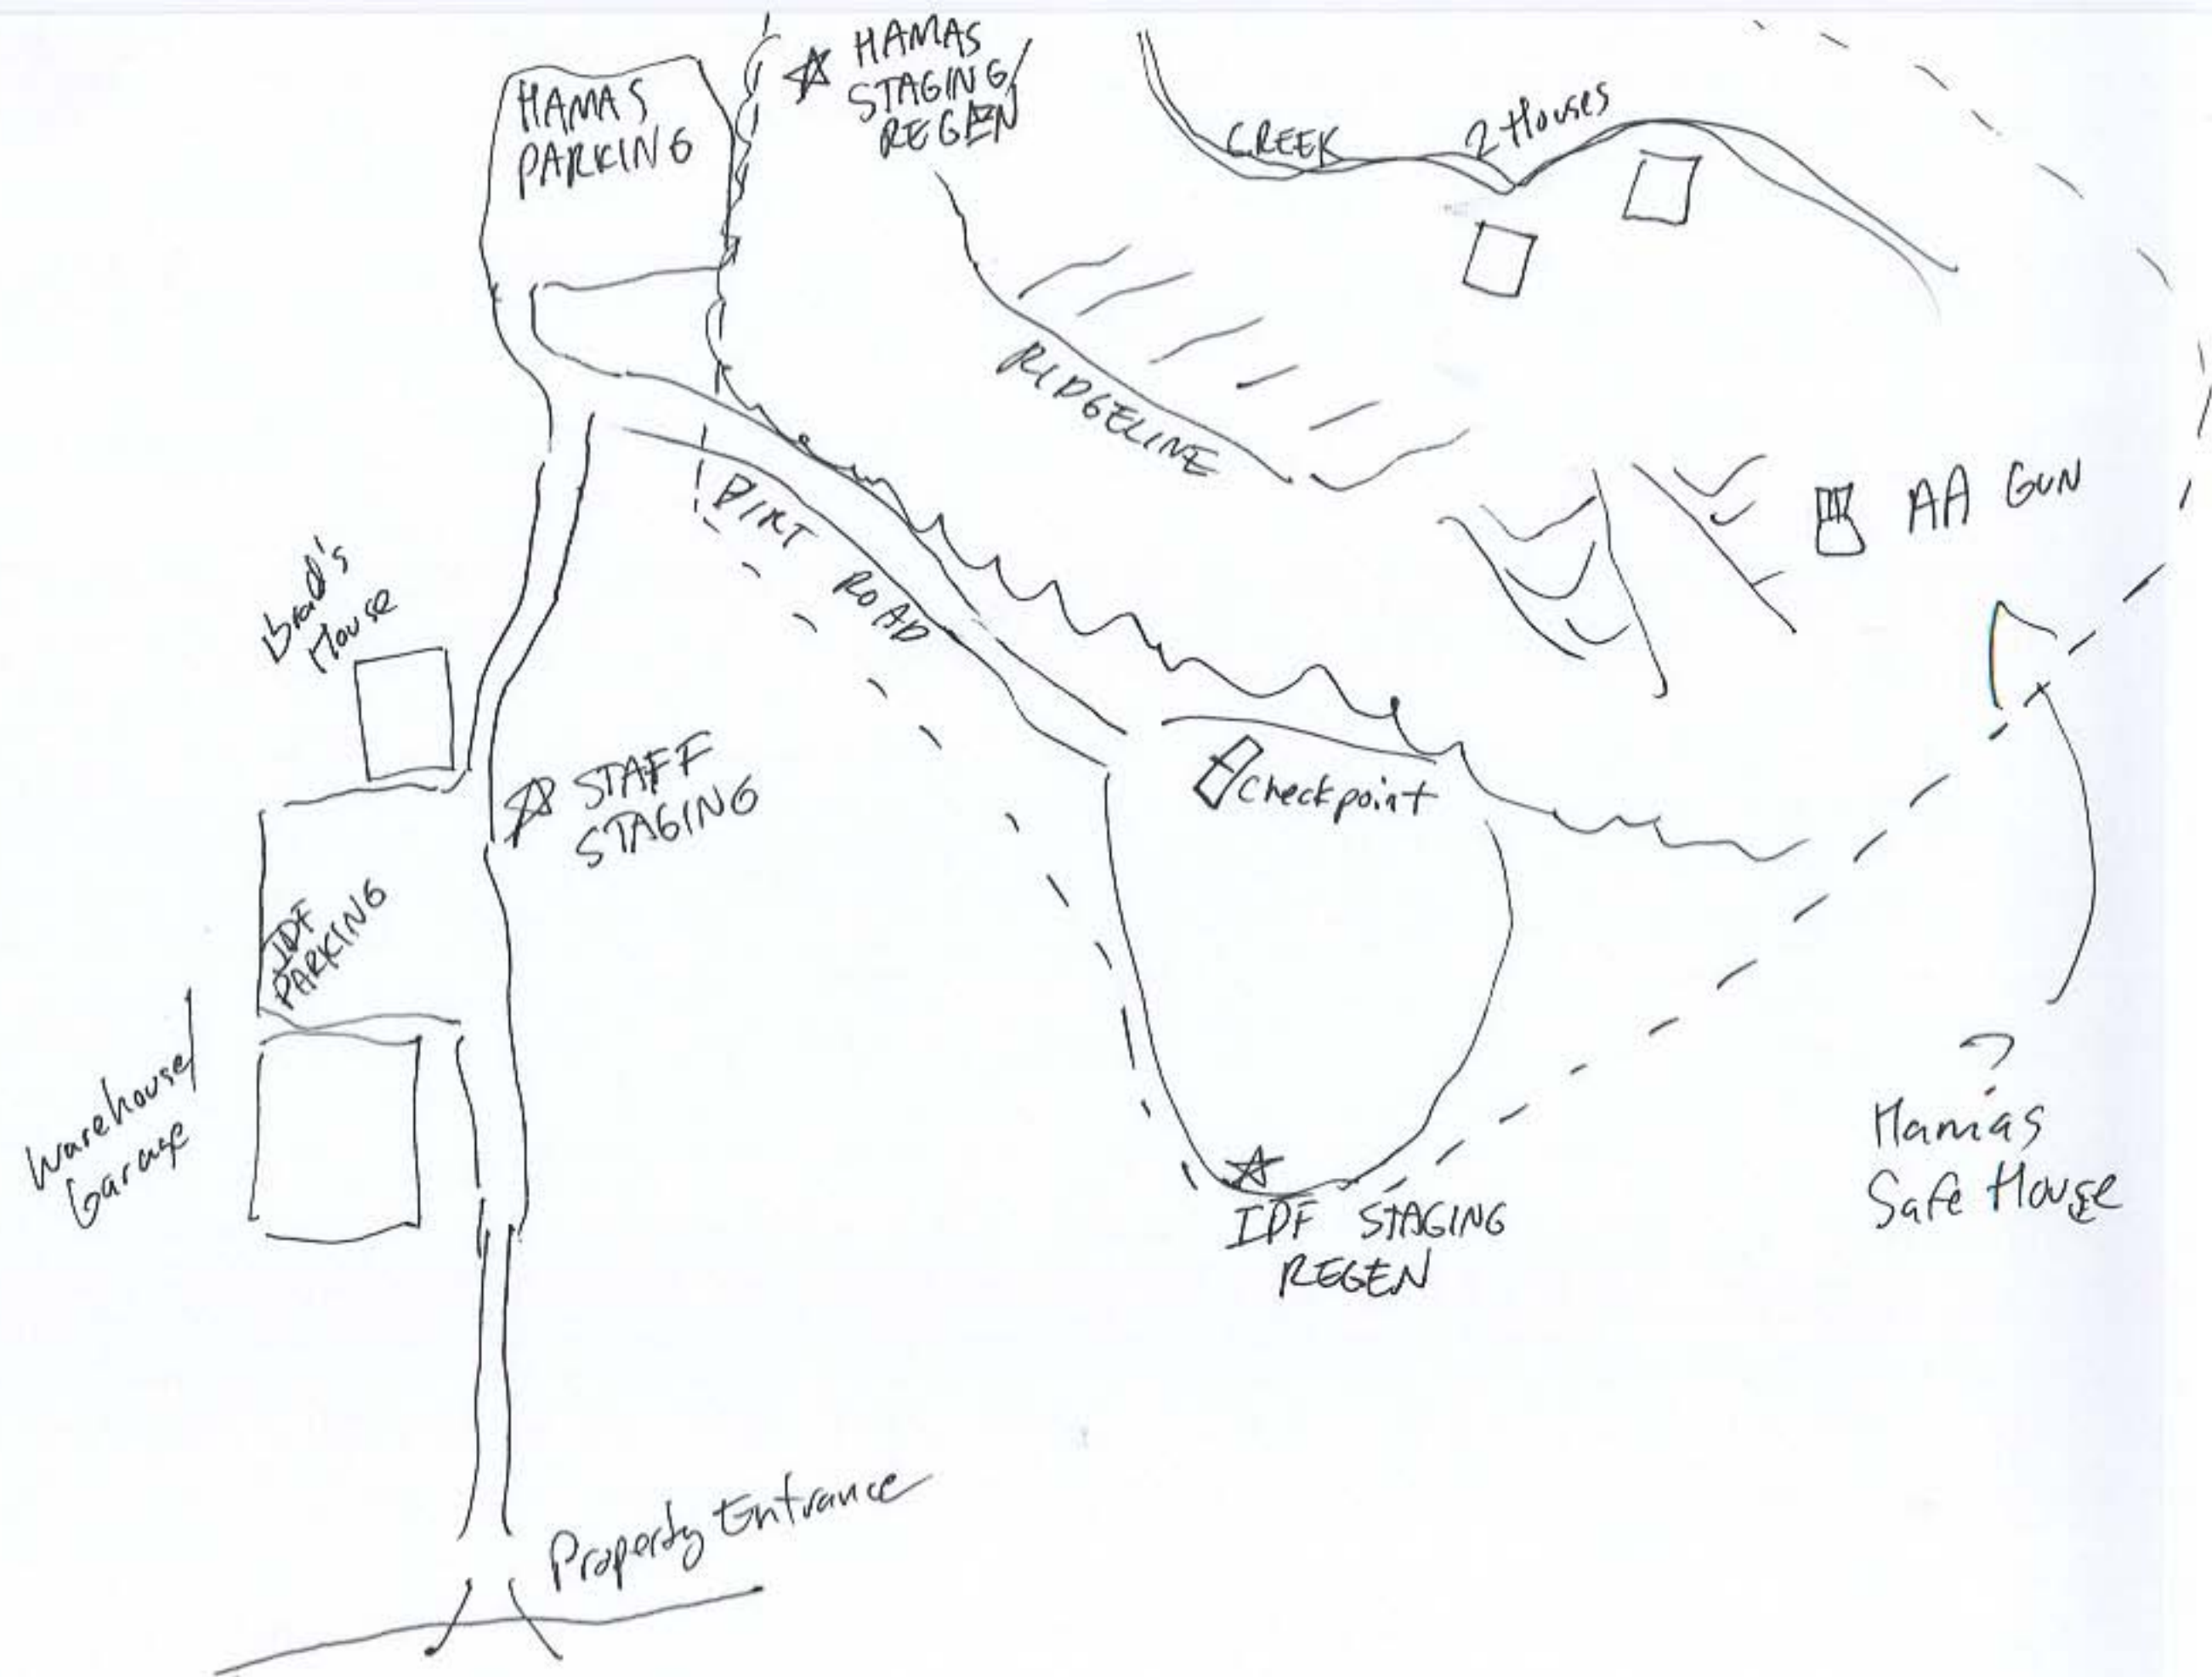 HAMAS
PARKING
HAMAS
STAGING/
REGEN
CREEK
2 Houses
RIDGELINE
AA GUN
DIRT ROAD
Brad's
House
STAFF
STAGING
Checkpoint
IDF
PARKING
Warehouse/
Garage
IDF STAGING
REGEN
?
Hamas
Safe House
Property Entrance